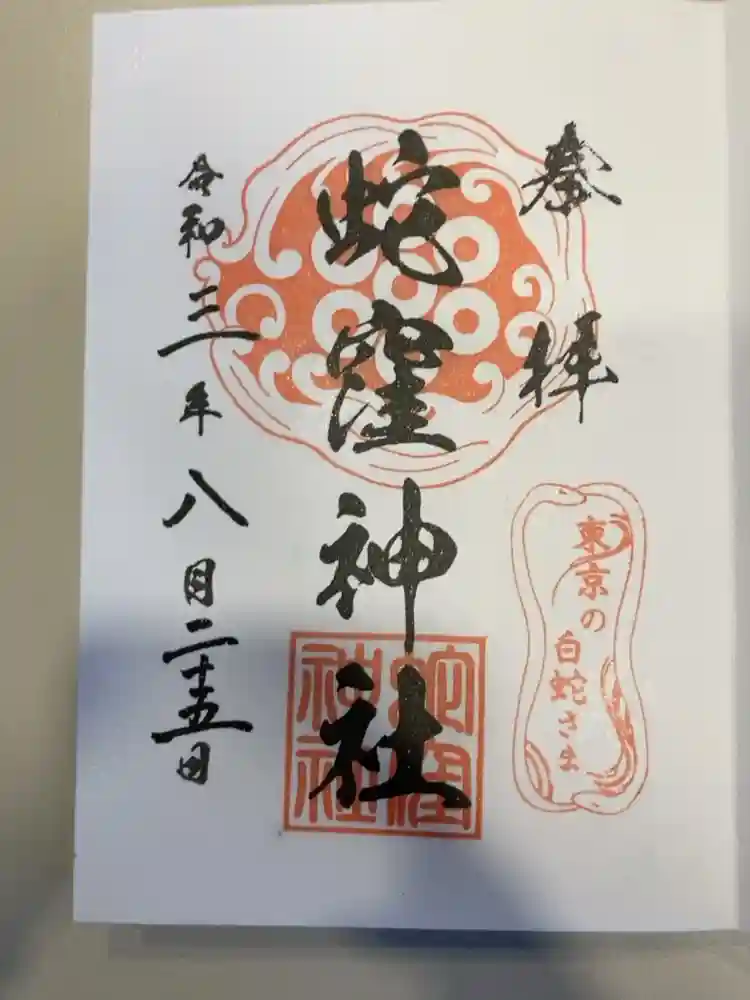 奉拝
東京の
白蛇さま
蛇窪神社
蛇窪
神社
令和三年八月二十五日